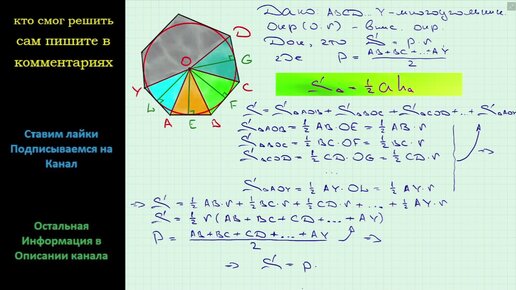 кто смог решить
сам пишите в
комментариях
Ставим лайки
Подписываемся на
Канал
Остальная
Информация в
Описании канала
D
O
G
Y
C
L
F
A
E
B
Дано ABCD..Y - многоугольник
Окр (O.r) - впис. окр.
Док, что S = p.r
где p = AB+BC+...+AY / 2
S△ = 1/2 a hₐ
S = S△AOB + S△BOC + S△COD + .. + S△AOY
S△AOB = 1/2 AB.OE = 1/2 AB.r
S△BOC = 1/2 BC.OF = 1/2 BC.r
S△COD = 1/2 CD.OG = 1/2 CD.r ⇒
...
S△AOY = 1/2 AY.OL = 1/2 AY.r
⇒ S = 1/2 AB.r + 1/2 BC.r + 1/2 CD.r + ... + 1/2 AY.r
S = 1/2 r (AB + BC + CD + ... + AY)
p = AB+BC+CD+...+AY / 2 ⇒
⇒ S = p.